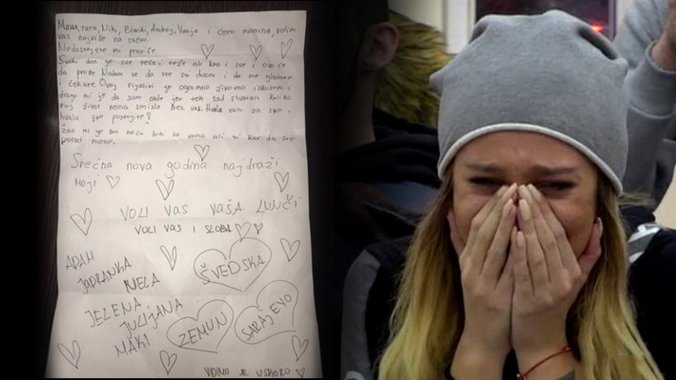 Mama, tata, Niki, Blanki, Andrej, Vanja i ćero mamina, volim
vas najviše na svetu.
Nedostajete mi previše
Svaki dan je sve teže i teže ali kao i sve i ovo će
da prođe Nadam se da ste svi dobro i da me gledate
i čekate. Ovaj rijaliti je ogromno životno iskustvo i
drago mi je da sam ovde jer tek sad shvatam koliko
moj život nema smisla bez vas. Hvala vam za sve i
hvala što postojite!
Žao mi je što neću biti sa vama ali vi kao da ste
pored mene.
Srećna nova godina najdraži
moji
VOLI VAS VAŠA LUNČI
VOLI VAS I SLOBA
ADAM
JADRANKA
NELA
ŠVEDSKA
JELENA
JULIJANA
MAKI
ZEMUN
SARAJEVO
VIDIMO SE USKORO